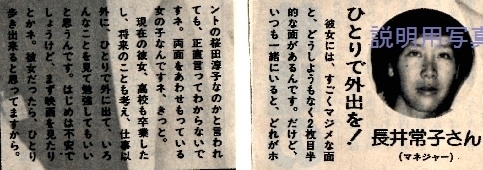 ひとりで外出を！
説明用写真
長井常子さん
（マネジャー）
彼女には、すごくマジメな面
と、どうしようもなく2枚目半
的な面があるんです。だけど、
いつも一緒にいると、どれがホ
ントの桜田淳子なのかと言われ
ても、正直言ってわからないで
すネ。両面をあわせもっている
女の子なんですネ、きっと。
現在の彼女、高校も卒業した
し、将来のことも考え、仕事以
外に、ひとりで外に出て、いろ
んなことを見て勉強してもいい
と思うんです。はじめは不安で
しょうけど、まず映画を見たり
とかネ。彼女だったら、ひとり
歩き出来ると思ってますから。